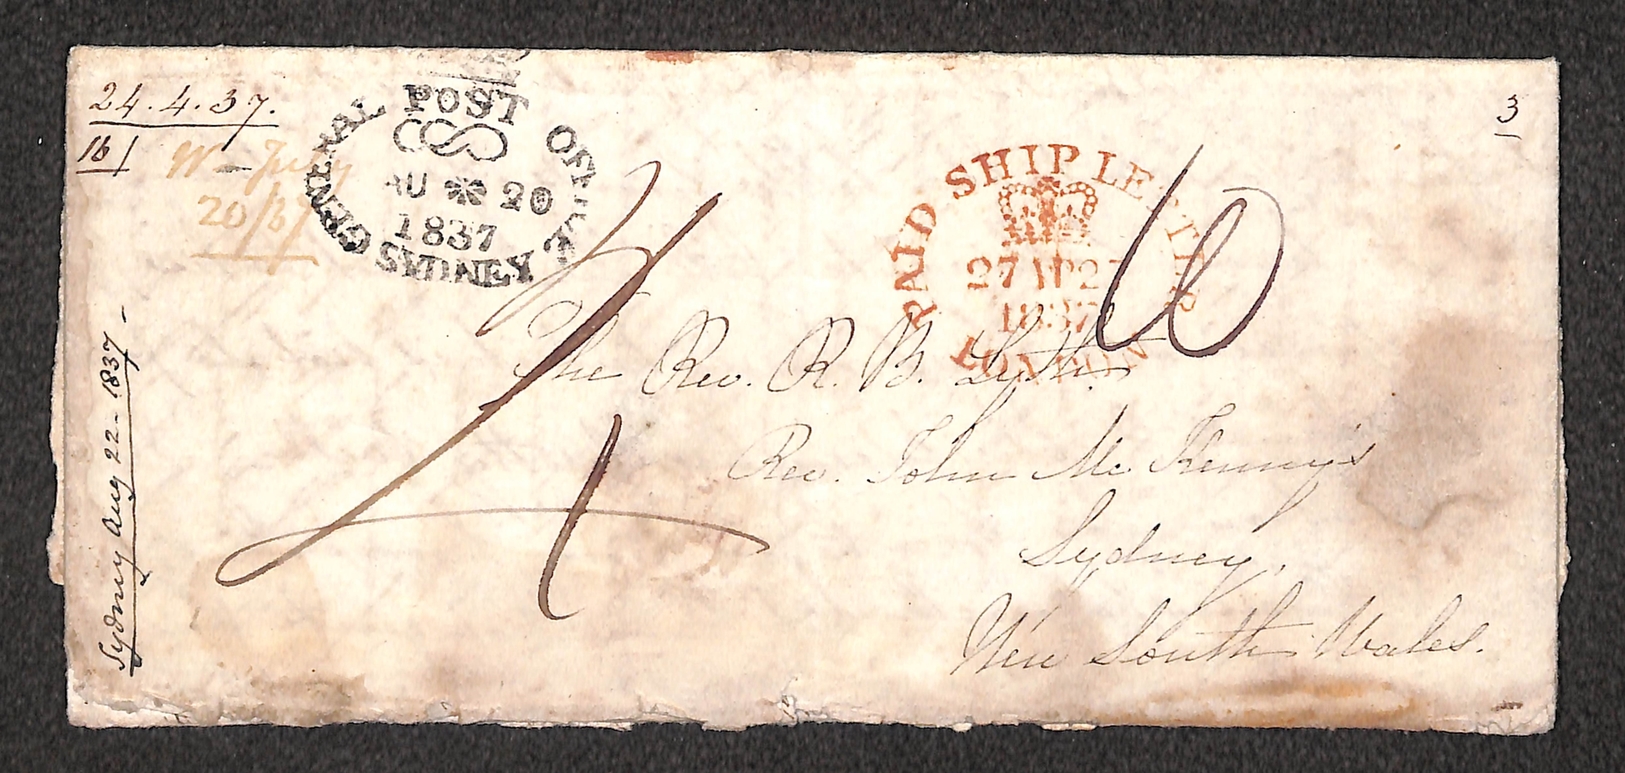 24.4.37.
16
W - July
20/37
Sydney Aug 22 - 1837 -
GENERAL POST OFFICE
AU 20
1837
SYDNEY
3
PAID SHIP LETTER
27 AP 27
1837
LONDON
4
The Rev. R. B. Lyth
Rev. John Mc Kenny's
Sydney,
New South Wales.